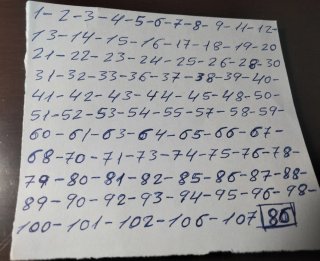 1-2-3-4-5-6-7-8-9-11-12-
13-14-15-16-17-18-19-20
21-22-23-24-25-26-28-30
31-32-33-36-37-38-39-40-
41-42-43-44-45-48-50-
51-52-53-54-55-57-58-59-
60-61-63-64-65-66-67-
68-70-71-73-74-75-76-78-
79-80-81-82-85-86-87-88-
89-90-92-93-94-95-96-98-
100-101-102-106-107 86